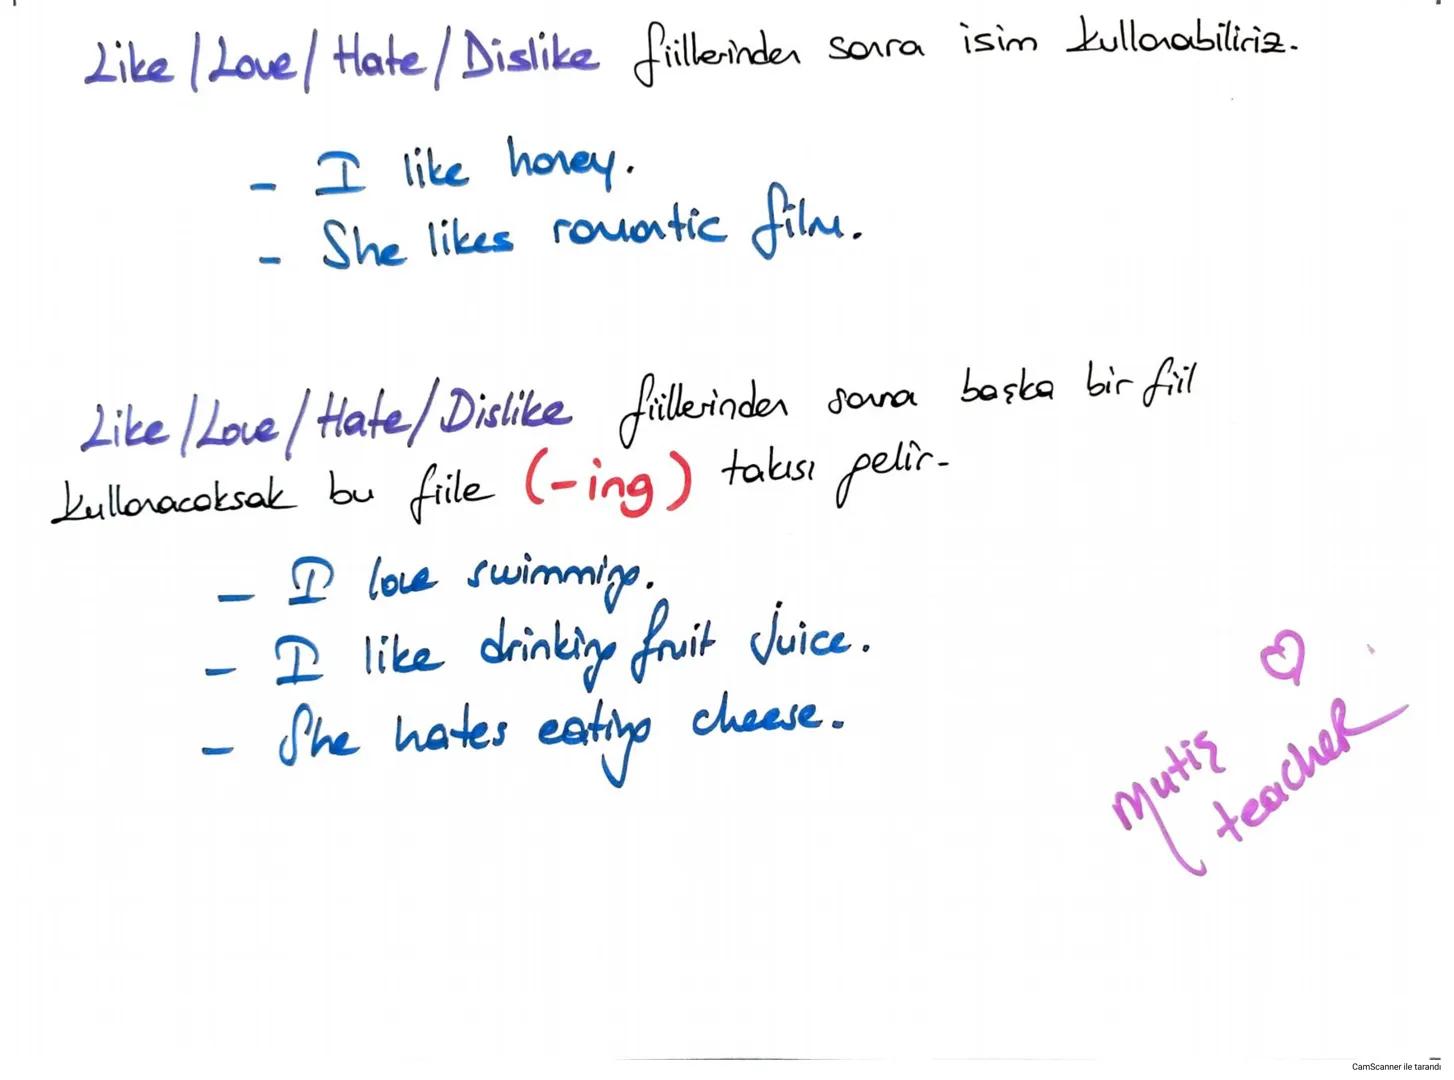 Like / Love / Hate / Dislike fiillerinden sonra isim kullanabiliriz.
- I like honey.
- She likes romantic film.
Like / Love / Hate / Dislike fiillerinden sonra başka bir fiil
kullanacaksak bu fiile (-ing) takısı gelir.
- I love swimming.
- I like drinking fruit juice.
- She hates eating cheese.
Mutiş
teacher
CamScanner ile tarandı